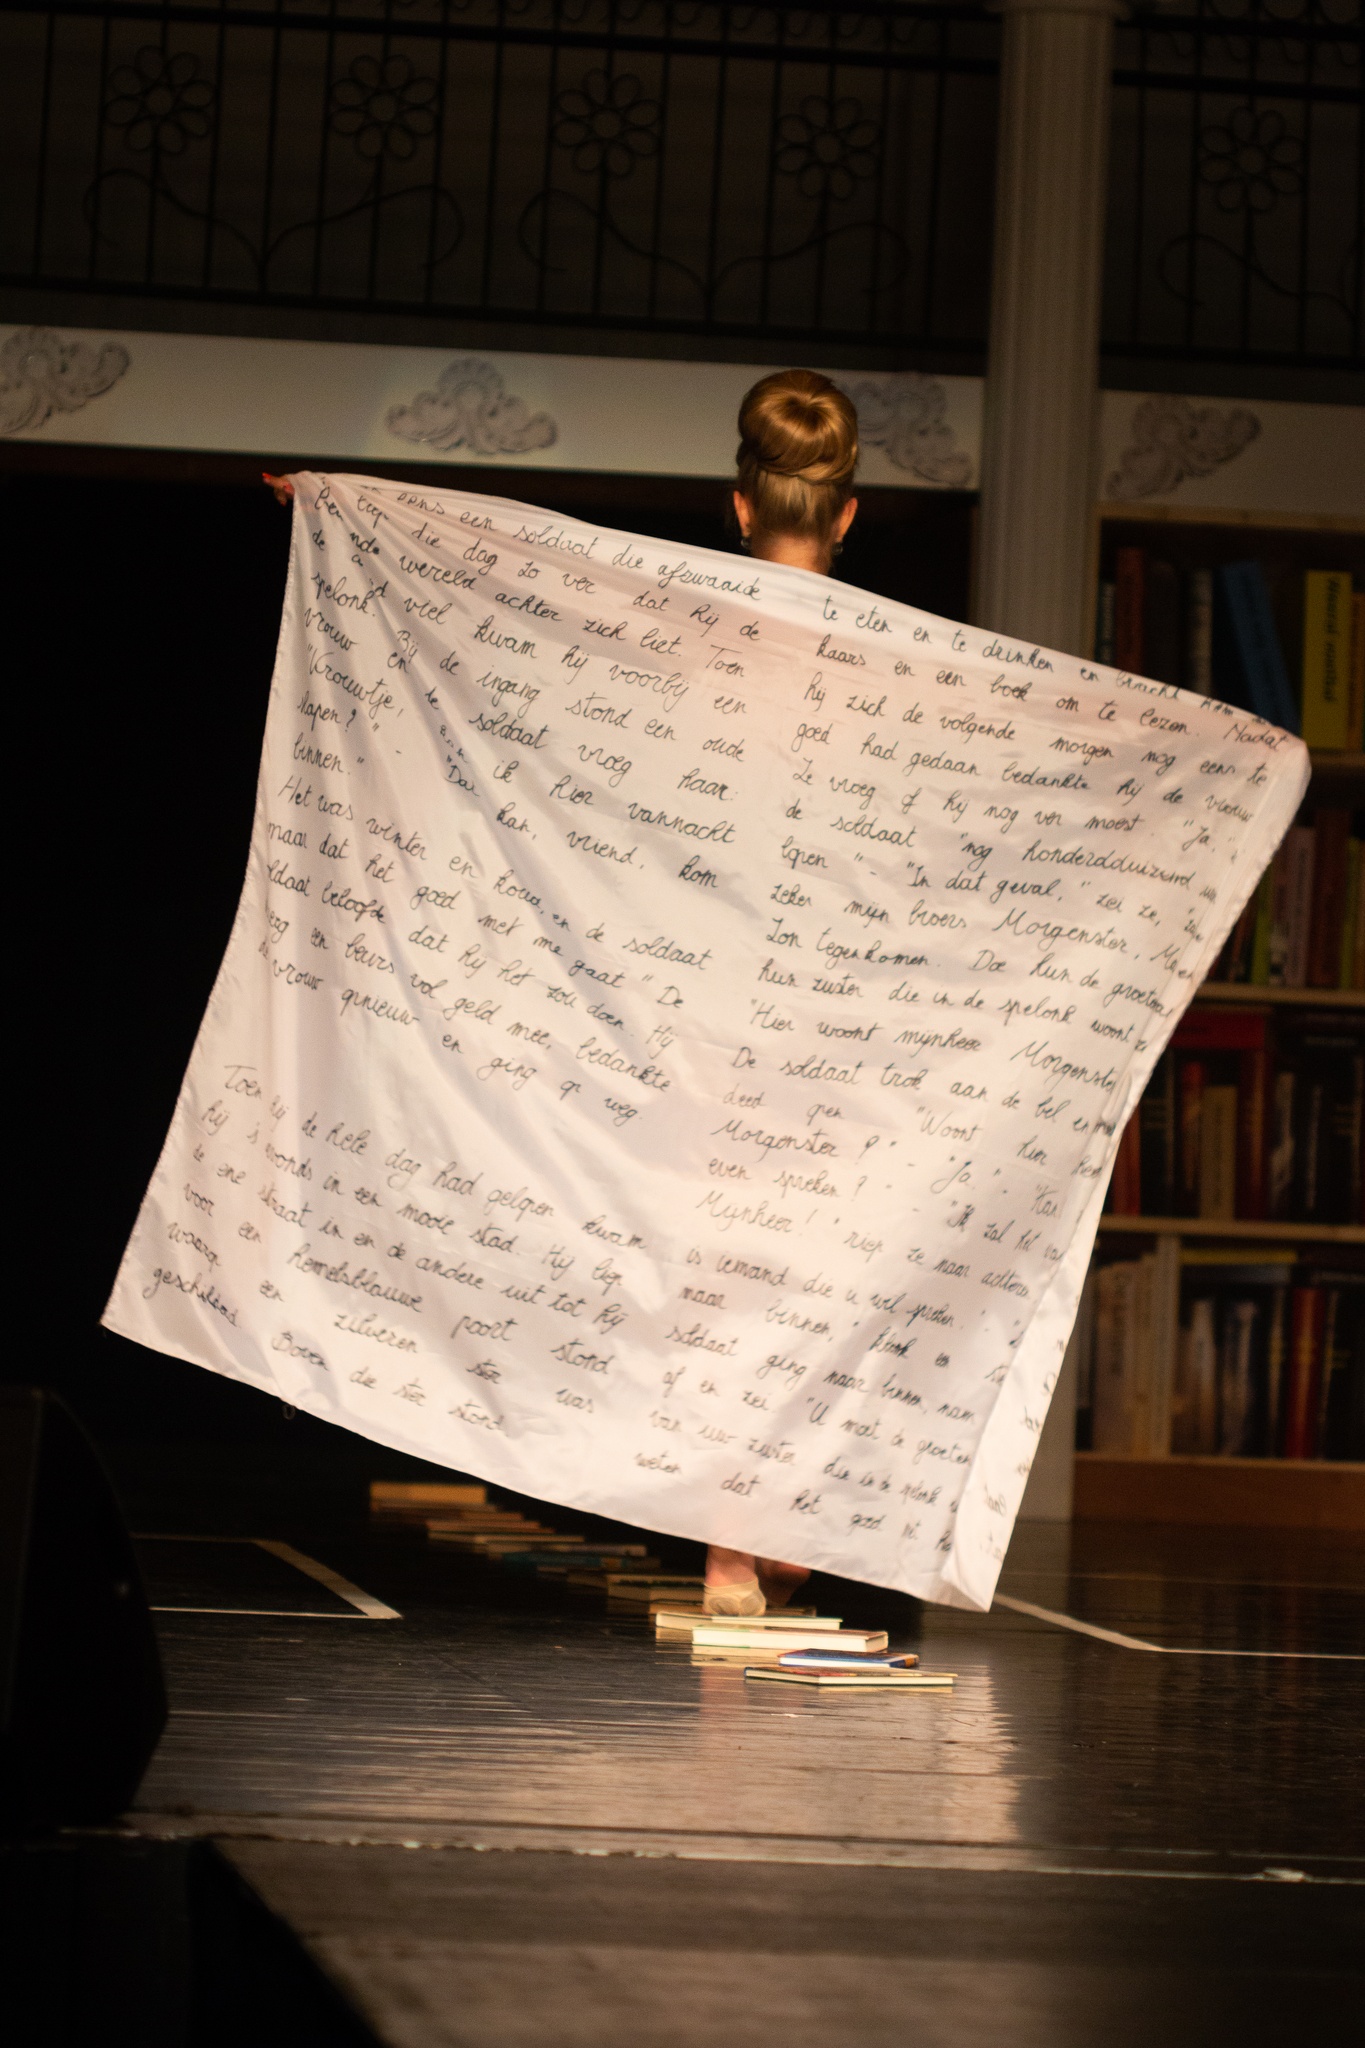 eens een soldaat die afzwaaide
liep die dag zo ver dat hij de
de wereld achter zich liet. Toen
viel kwam hij voorbij een
spelonk. Bij de ingang stond een oude
vrouw en de soldaat vroeg haar:
"Vrouwtje, ik hier vannacht
slapen?" - "Dat kan, vriend, kom
binnen."
Het was winter en koud, en de soldaat
maar dat het goed met me gaat" De
soldaat beloofde dat hij het zou doen. Hij
een beurs vol geld mee, bedankte
de vrouw opnieuw en ging op weg.
Toen hij de hele dag had gelopen kwam
hij 's avonds in een mooie stad. Hij liep
de ene straat in en de andere uit tot hij
voor een hemelsblauwe poort stond
waarop een zilveren ster was
geschilderd Boven die ster stond
te eten en te drinken en bracht hem
kaars en een boek om te lezen. Nadat
hij zich de volgende morgen nog eens te
goed had gedaan bedankte hij de vrouw
Ze vroeg of hij nog ver moest. "Ja,"
de soldaat "nog honderdduizend
lopen" - "In dat geval," zei ze,
zeker mijn broers Morgenster,
Zon tegenkomen. Doe hun de groeten
hun zuster die in de spelonk woont
"Hier woont mijnheer Morgenster
De soldaat trok aan de bel en
deed open "Woont hier
Morgenster?" - "Ja." - "Kan
even spreken?" - "Ik zal het
Mijnheer!" riep ze naar achteren
is iemand die u wil spreken." -
maar binnen," klonk
soldaat ging naar binnen, nam
af en zei. "U moet de groeten
van uw zuster die in de spelonk
weten dat het goed